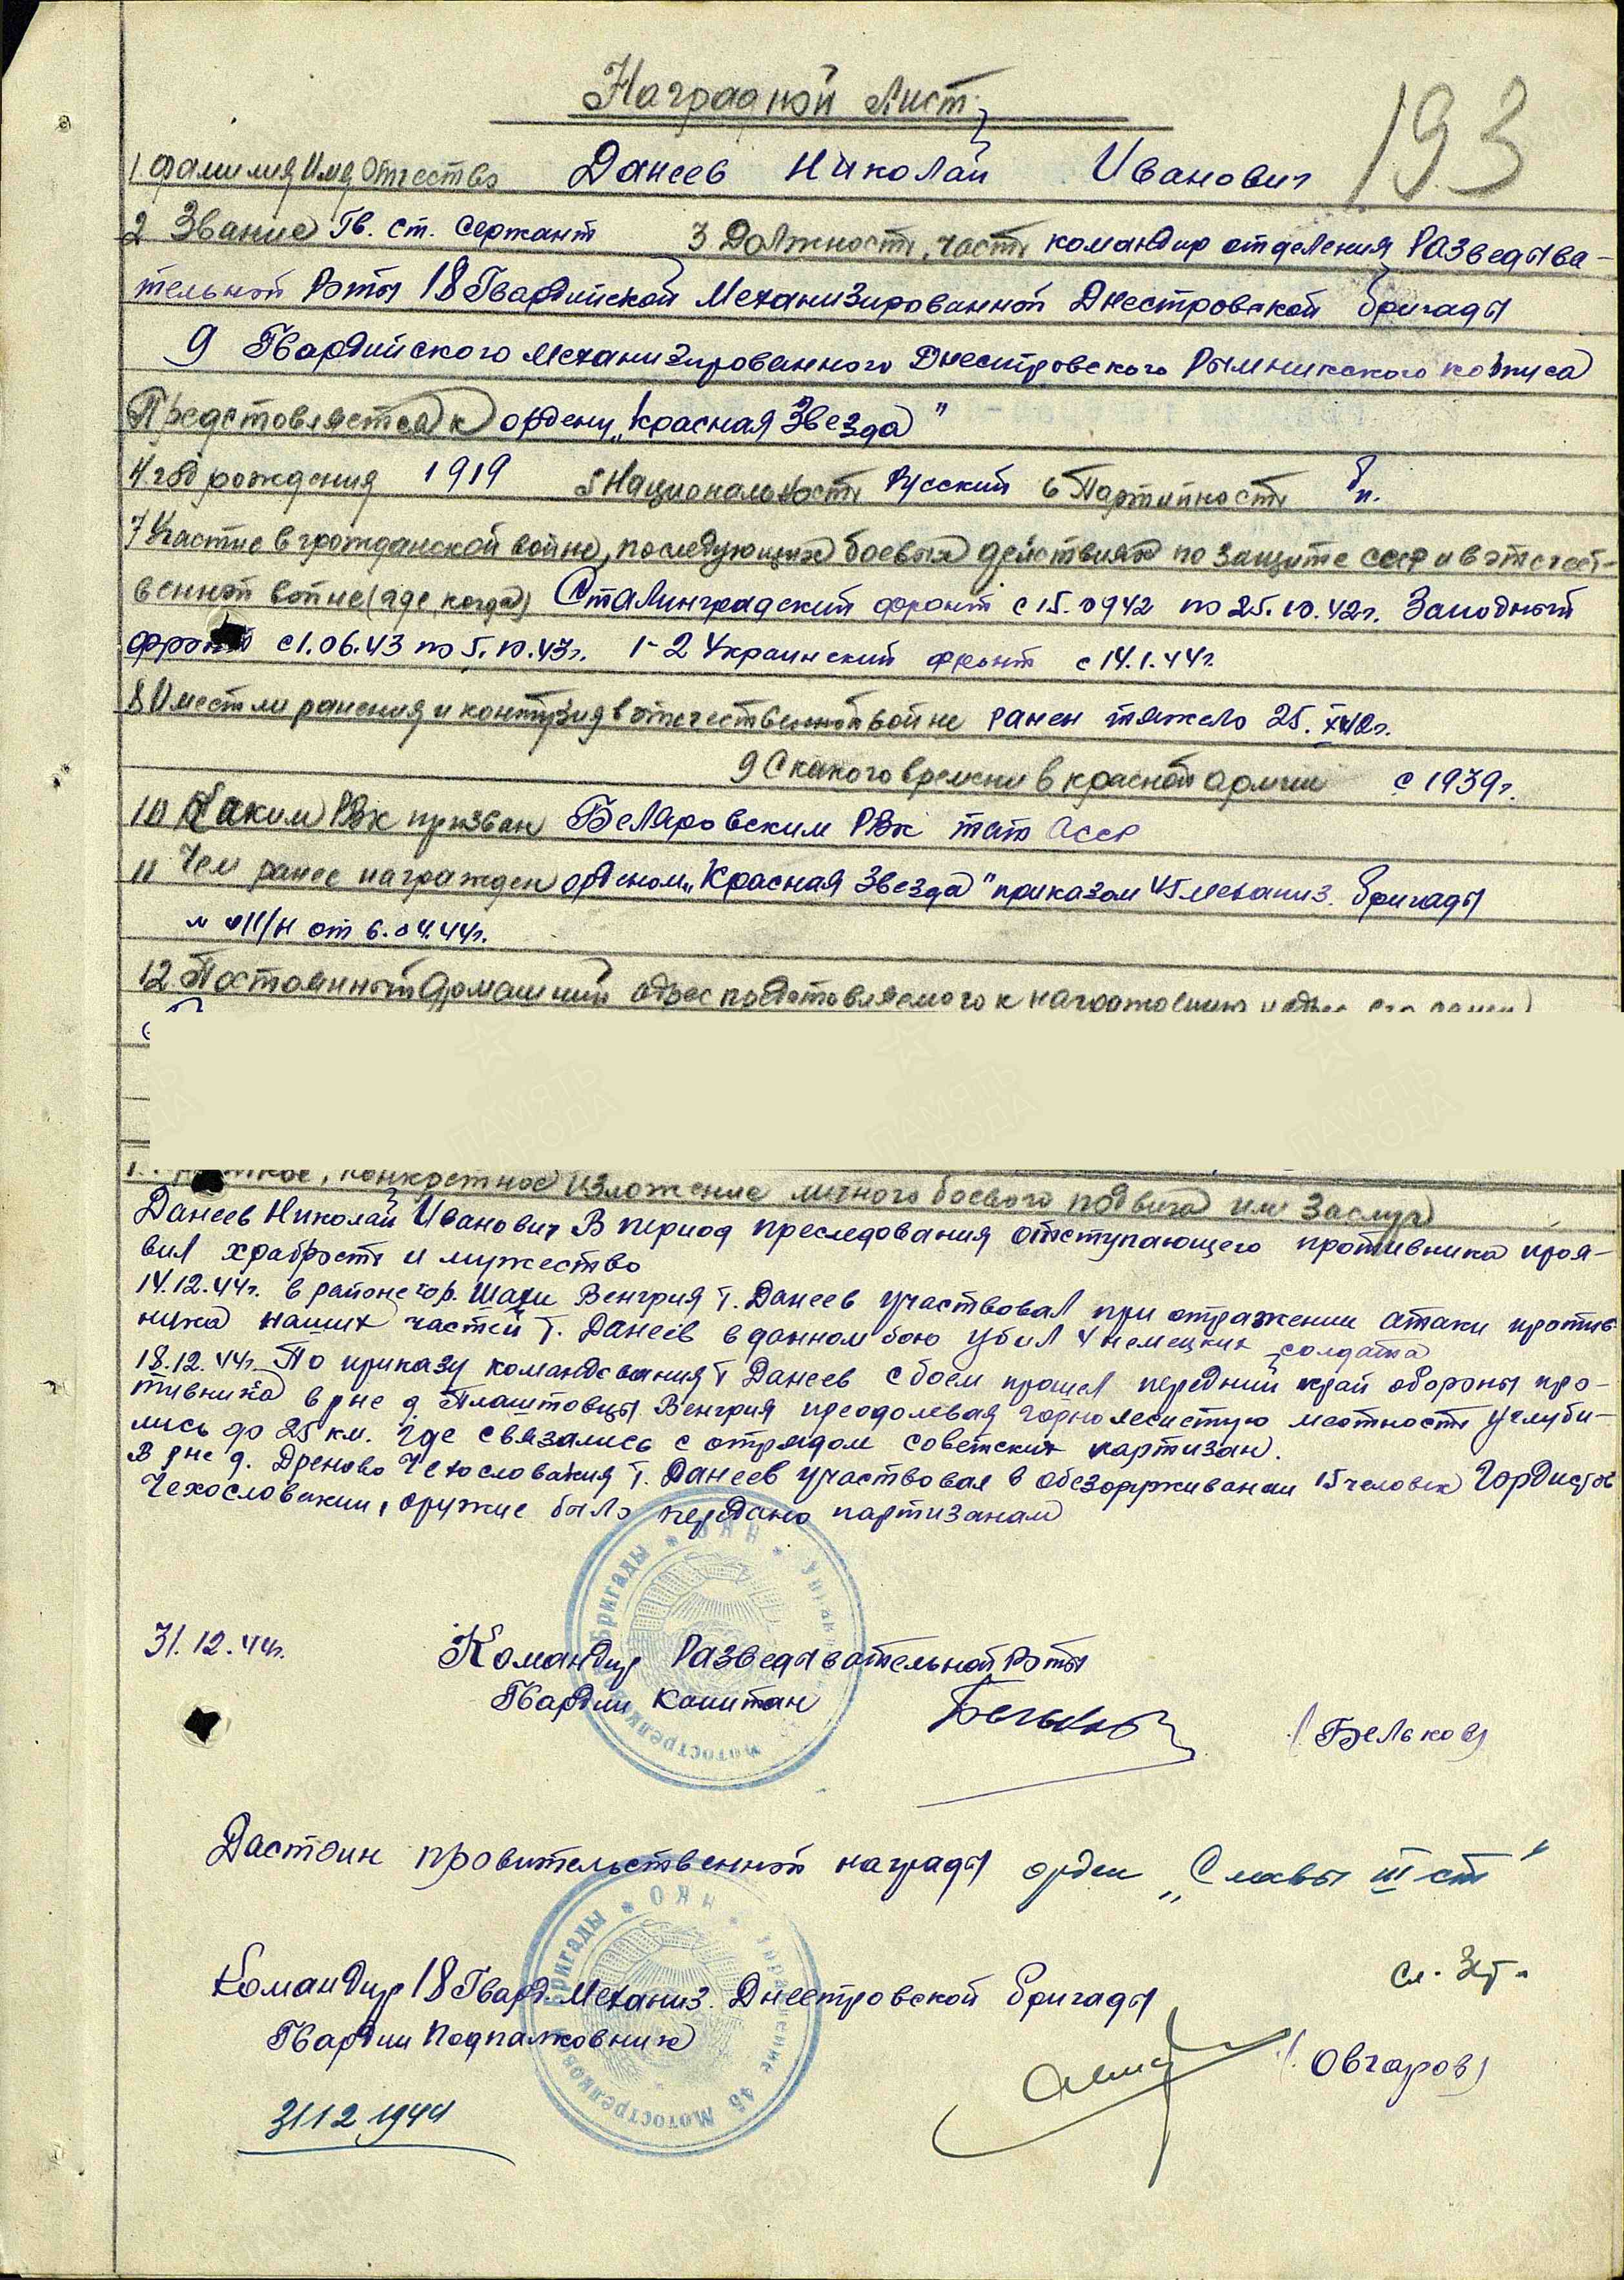 Наградной лист
193
1 Фамилия Имя Отчество Данеев Николай Иванович
2 Звание Гв. ст. сержант 3 Должность, часть командир отделения Разведыва-
тельной Роты 18 Гвардийской Механизированной Днестровской бригады
9 Гвардийского Механизированного Днестровского Рымникского корпуса
Предстовляется к ордену „Красная Звезда"
4 год рождения 1919 5 Националь ность Русский 6 Партийность б/п.
7 Участие в гражданской войне, последующих боевых действиях по защите ссср и в отечест-
венной войне (где, когда) Сталинградский фронт с 15.0942 по 25.10.42г. Западный
фронт с 1.06.43 по 5.10.43г. 1-2 Украинский фронт с 14.1.44г.
8 Имеет ли ранения и контузия в отечественной войне ранен тяжело 25.
9 С какого времени в красной армии с 1939г.
10 Каким РВК призван Беляровским РВк тат АССР
11 Чем ранее награжден орденом „Красная Звезда" приказом 45 механиз. бригады
от 6.04.44г.
12 Постоянный домашний адрес представляемого к награждению и адрес его
конкретное изложение личного боевого подвига или заслуг
Данеев Николай Иванович В период преследования отступающего противника проя-
вил храбрость и мужество
14.12.44г. в районе гор. Шахи Венгрия т. Данеев участвовал при отражении атаки против-
ника наших частей т. Данеев в данном бою убил 4 немецких солдата
18.12.44г. По приказу командования т Данеев с боем прошел передний край обороны про-
тивника в рне д. Плаштовцы Венгрия преодолевая горно лесистую местность углуби-
лись до 25 км. где связались с отрядом советских партизан.
В рне д. Дреново Чехословакия т. Данеев участвовал в обезорживании 15 человек Гордистов
Чехословакии, оружие было передано партизанам
31.12.44г.
Командир Разведывательной Роты
Гвардии Капитан
/Бельков/
Дастоин правительственной награды орден „Славы III ст"
Командир 18 Гвард. Механиз. Днестровской бригады
Гвардии Подпалковник
/Овчаров/
31 12 1944
НКО * Управление 45 Мотострелковой Бригады *
ПАМЯТЬ НАРОДА